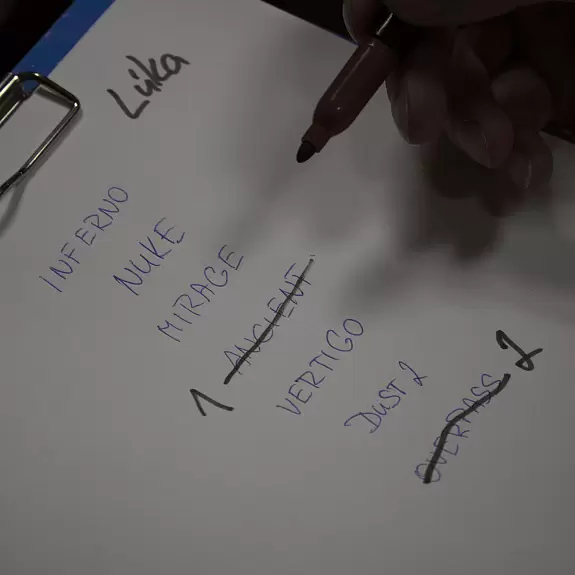 Luka
INFERNO
NUKE
MIRAGE
ANCIENT 1
VERTIGO
DUST 2
OVERPASS 1